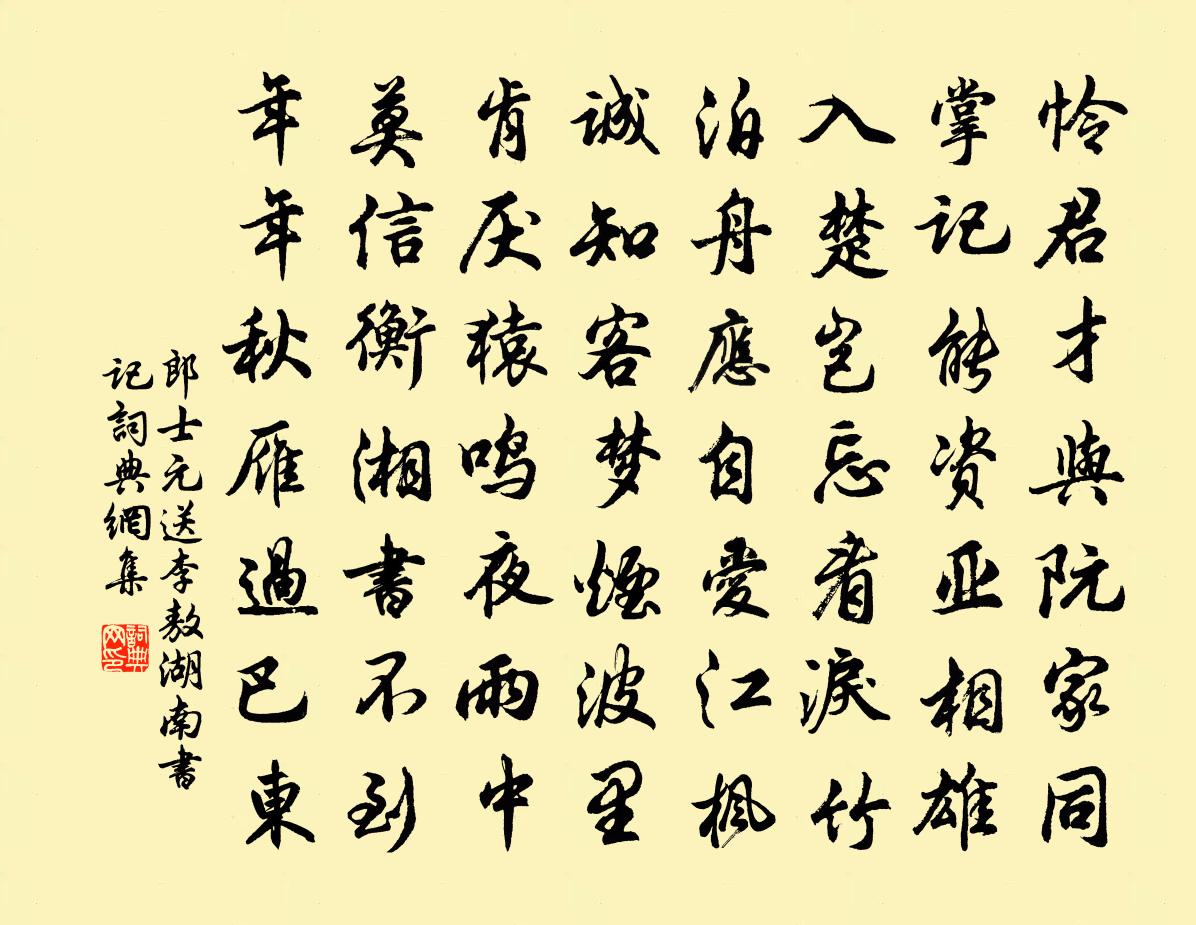 怜君才與阮家同
掌记能资亚相雄
入楚岂忘看淚竹
泊舟應自愛江楓
誠知客梦煙波里
肯厌猿鸣夜雨中
莫信衡湘書不到
年年秋雁過巴東
郎士元送李敖湖南書
记詞典網集
詞典网印